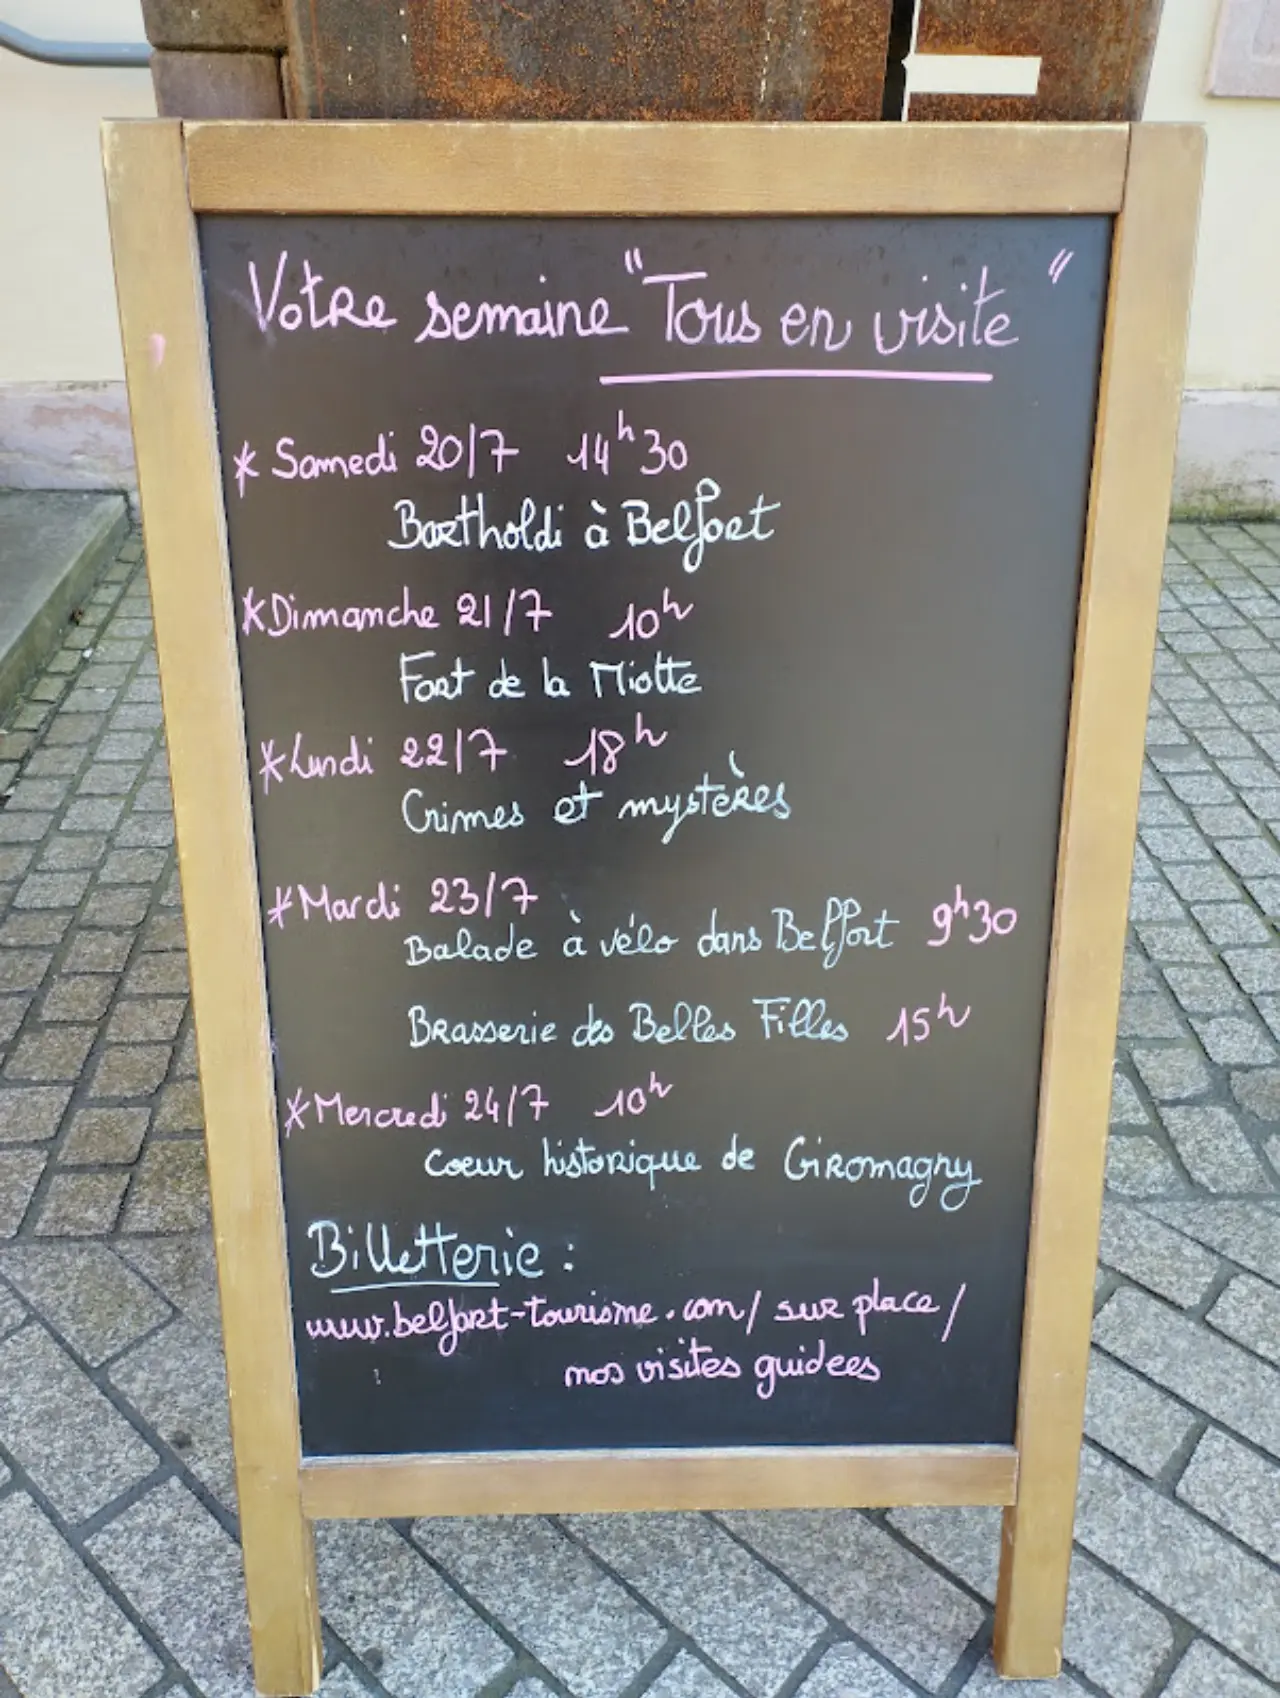 Votre semaine "Tous en visite"
* Samedi 20/7 14h30
Bartholdi à Belfort
* Dimanche 21/7 10h
Fort de la Miotte
* Lundi 22/7 18h
Crimes et mystères
* Mardi 23/7
Balade à vélo dans Belfort 9h30
Brasserie des Belles Filles 15h
* Mercredi 24/7 10h
Coeur historique de Giromagny
Billetterie :
www.belfort-tourisme.com/ sur place /
nos visites guidees